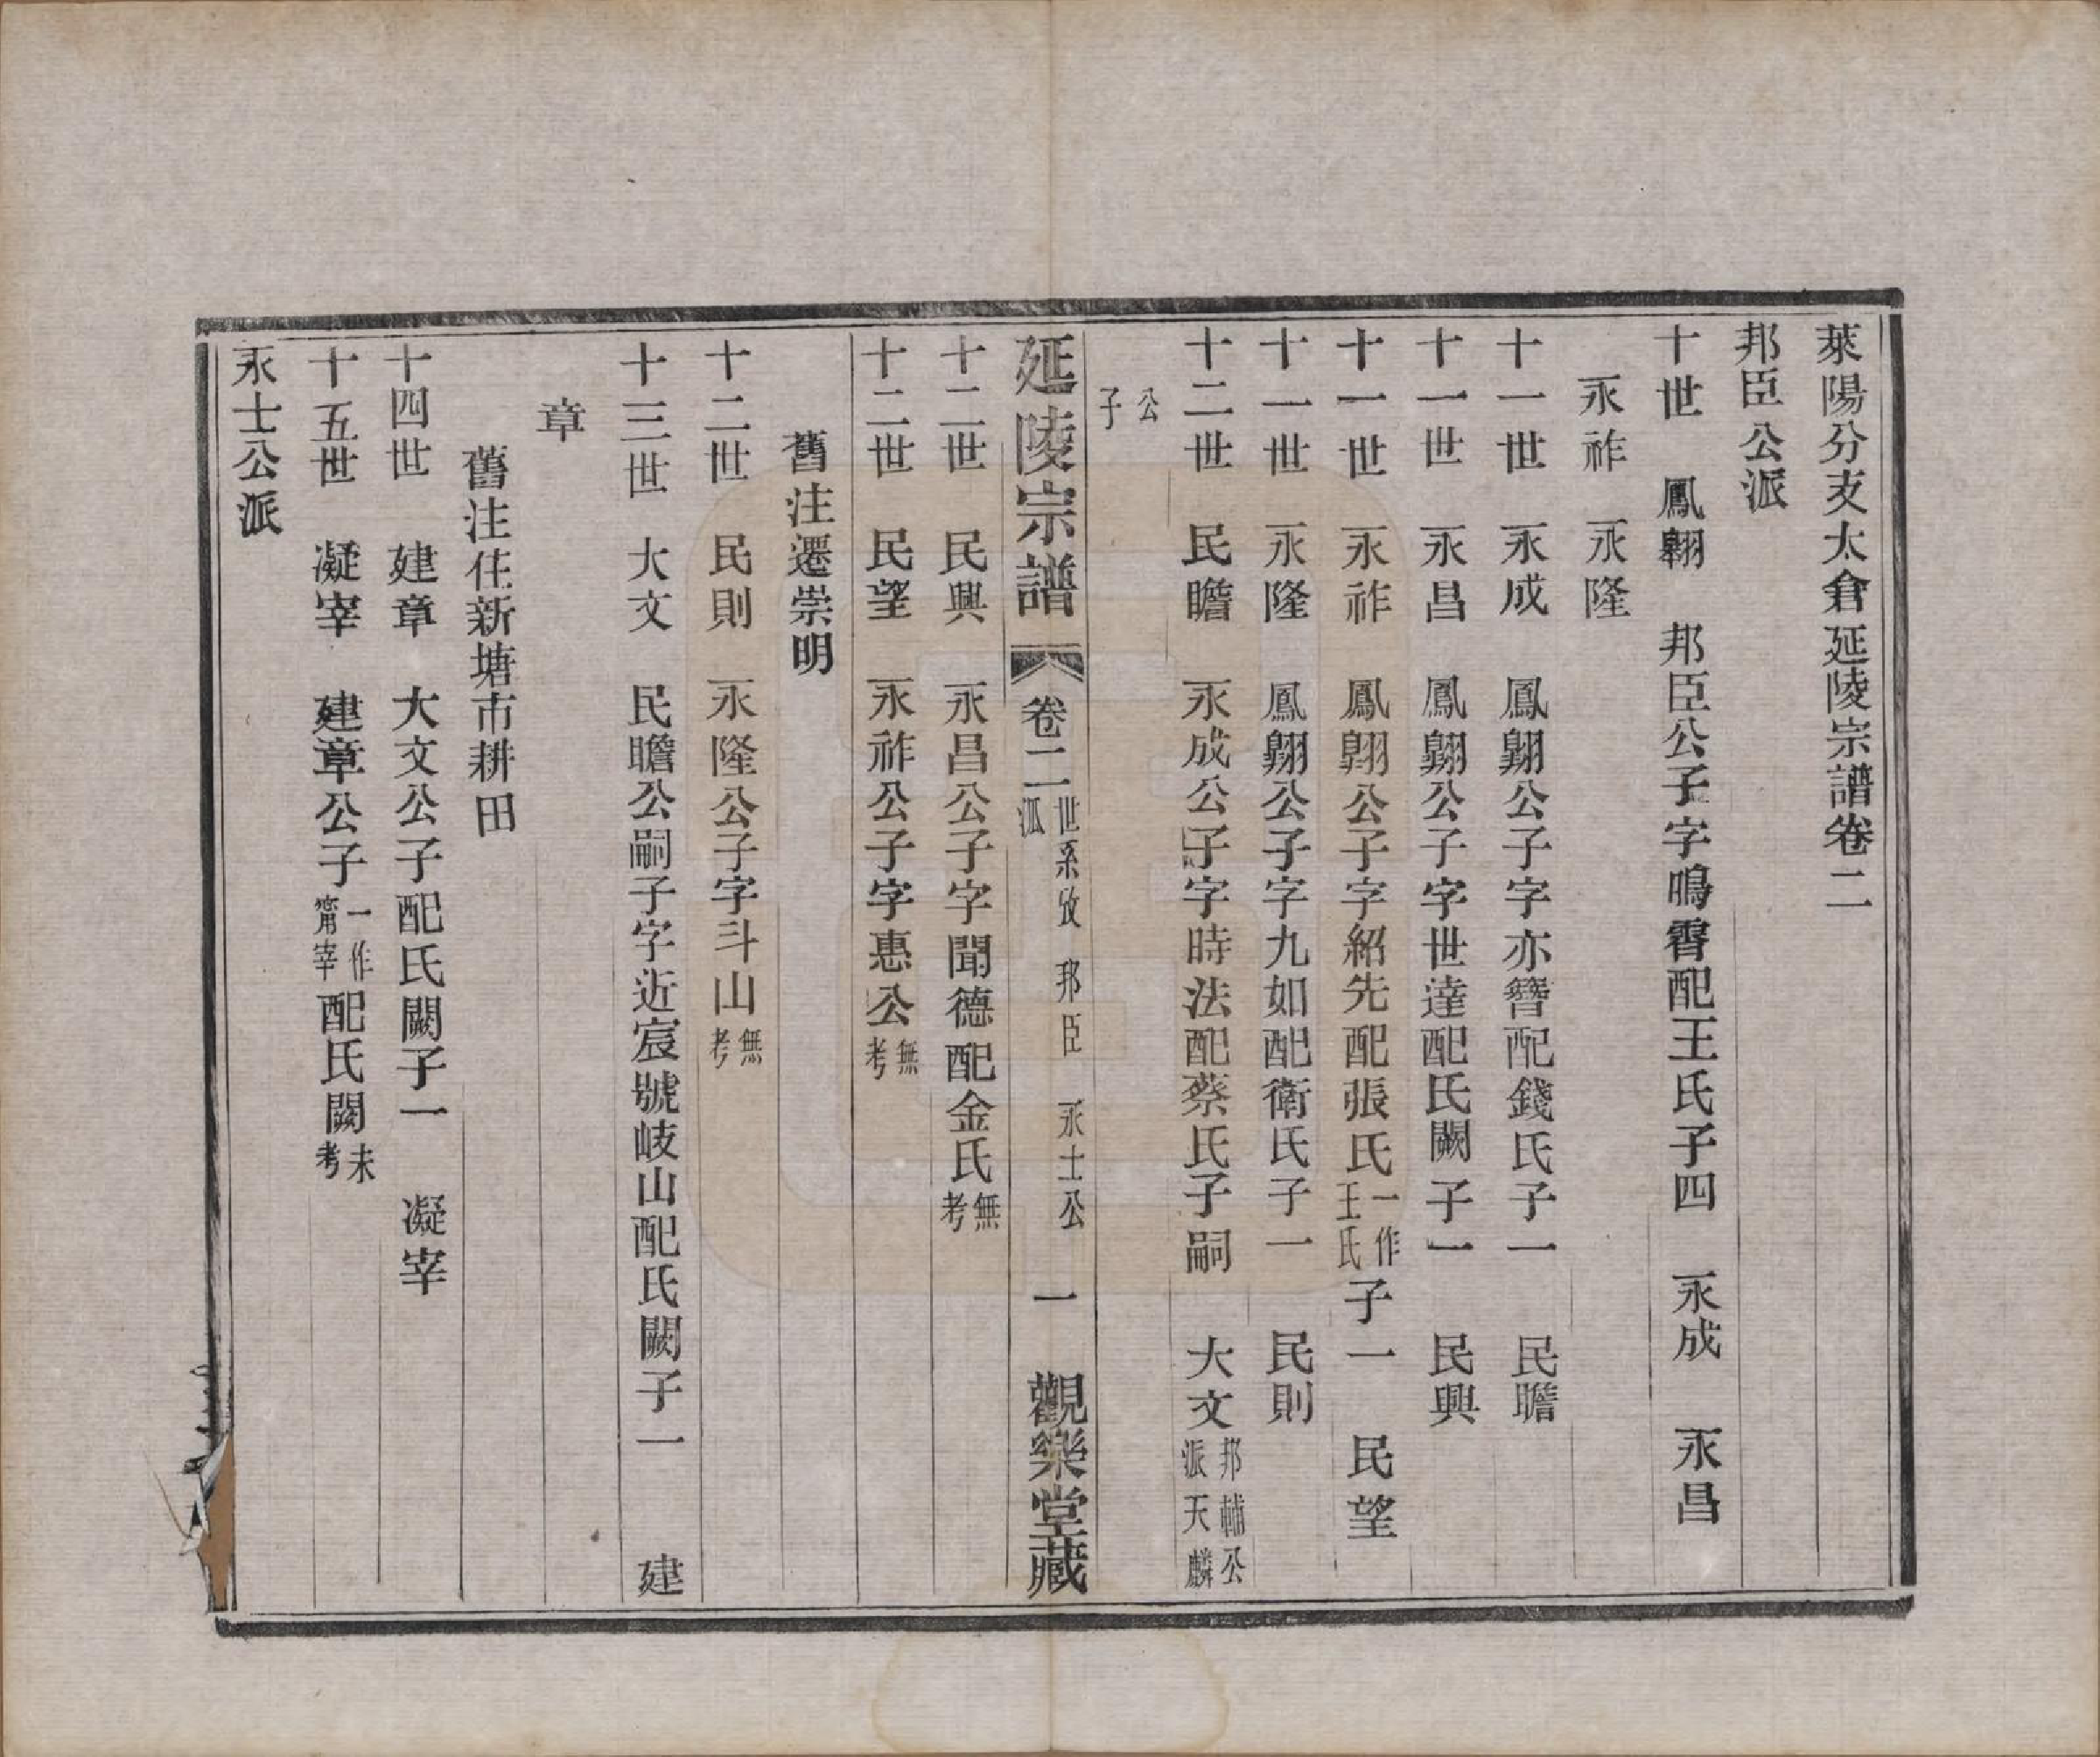 萊陽分支太倉延陵宗譜卷二
邦臣公派
十世　鳳翶　邦臣公子字鳴霄配王氏子四　永成　永昌
永祚　永隆
十一世　永成　鳳翶公子字亦簪配錢氏子一　民瞻
十一世　永昌　鳳翶公子字世達配氏闕子一　民興
十一世　永祚　鳳翶公子字紹先配張氏一作王氏子一　民望
十一世　永隆　鳳翶公子字九如配衛氏子一　民則
十二世　民瞻　永成公子字時法配蔡氏子嗣　大文邦輔公派天麟
公子
延陵宗譜　卷二　世系攷　邦臣　永士公派　一　觀樂堂藏
十二世　民興　永昌公子字聞德配金氏無考
十二世　民望　永祚公子字惠公無考
舊注遷崇明
十二世　民則　永隆公子字斗山無考
十三世　大文　民瞻公嗣子字近宸號岐山配氏闕子一　建
章
舊注住新塘市耕田
十四世　建章　大文公子配氏闕子一　凝宰
十五世　凝宰　建章公子一作甯宰配氏闕未考
永士公派